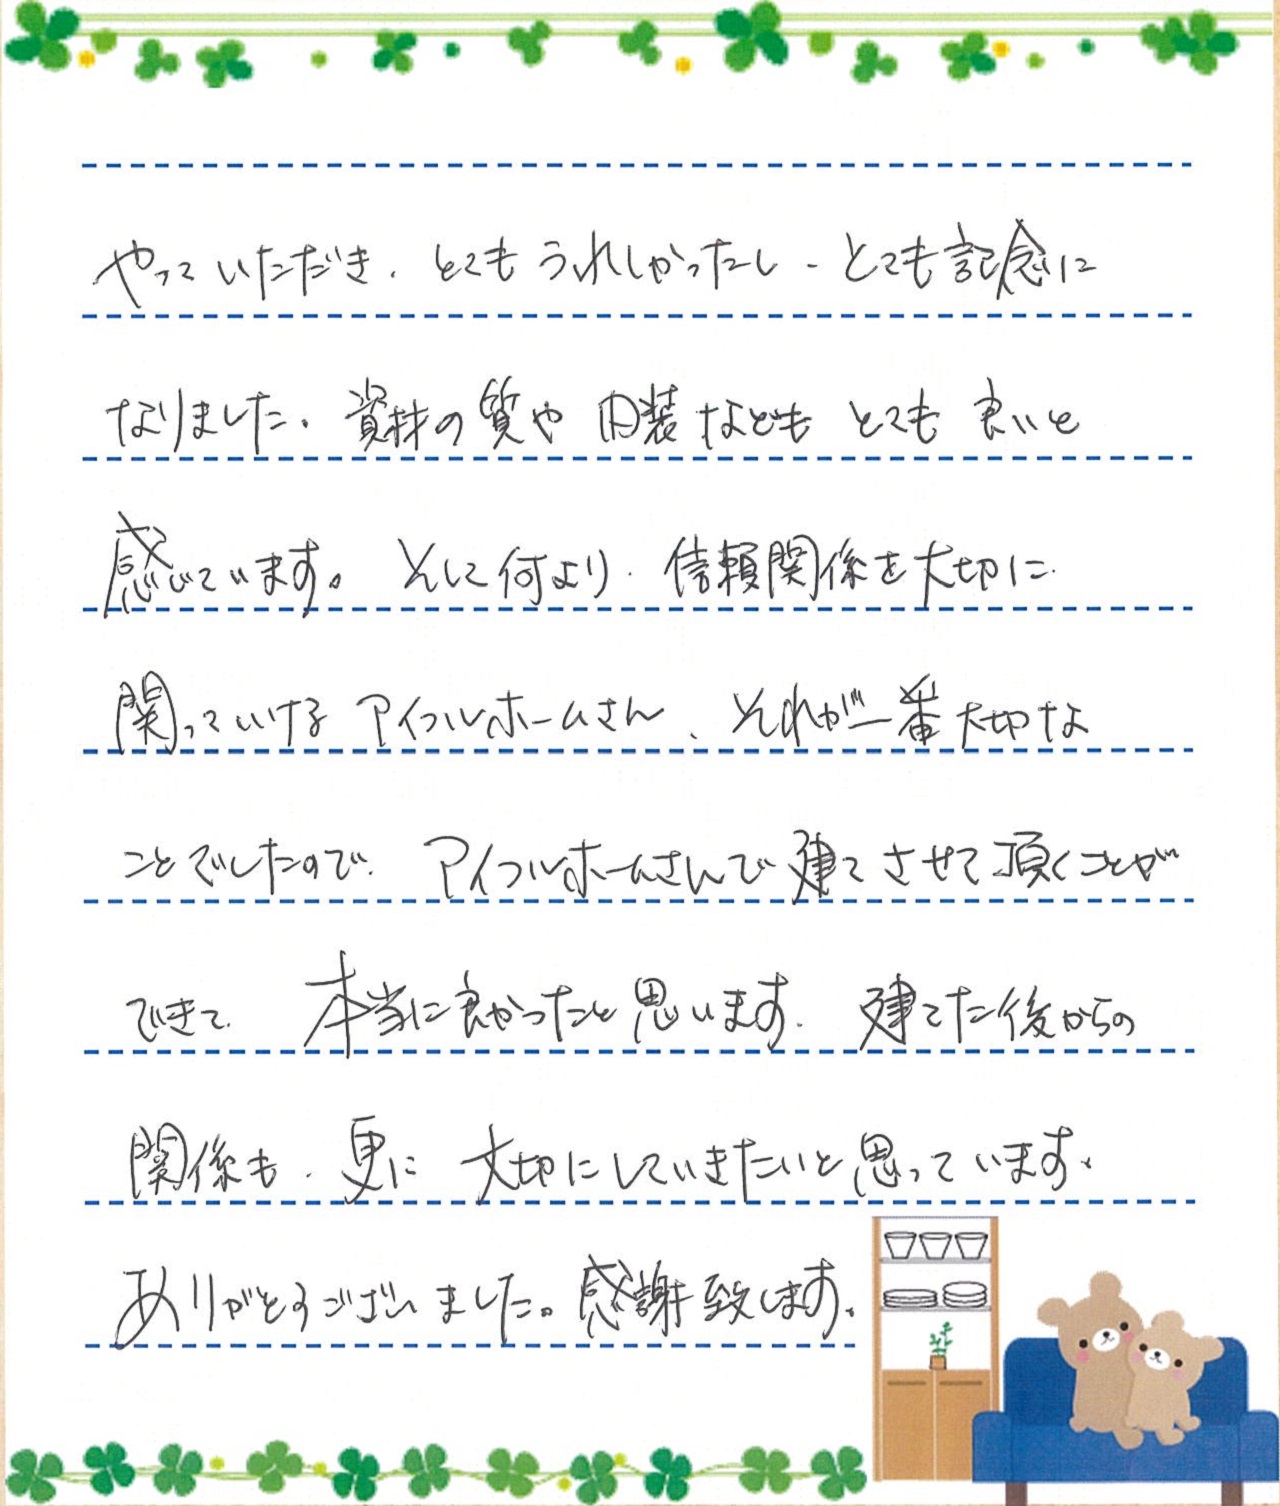 やっていただき、とてもうれしかったし、とても記念に
なりました。資材の質や内装などもとても良いと
感じています。そして何より、信頼関係を大切に
関っていけるアイフルホームさん、それが一番大切な
ことでしたので、アイフルホームさんで建てさせて頂くことが
できて、本当に良かったと思います。建てた後からの
関係も、更に大切にしていきたいと思っています。
ありがとうございました。感謝致します。